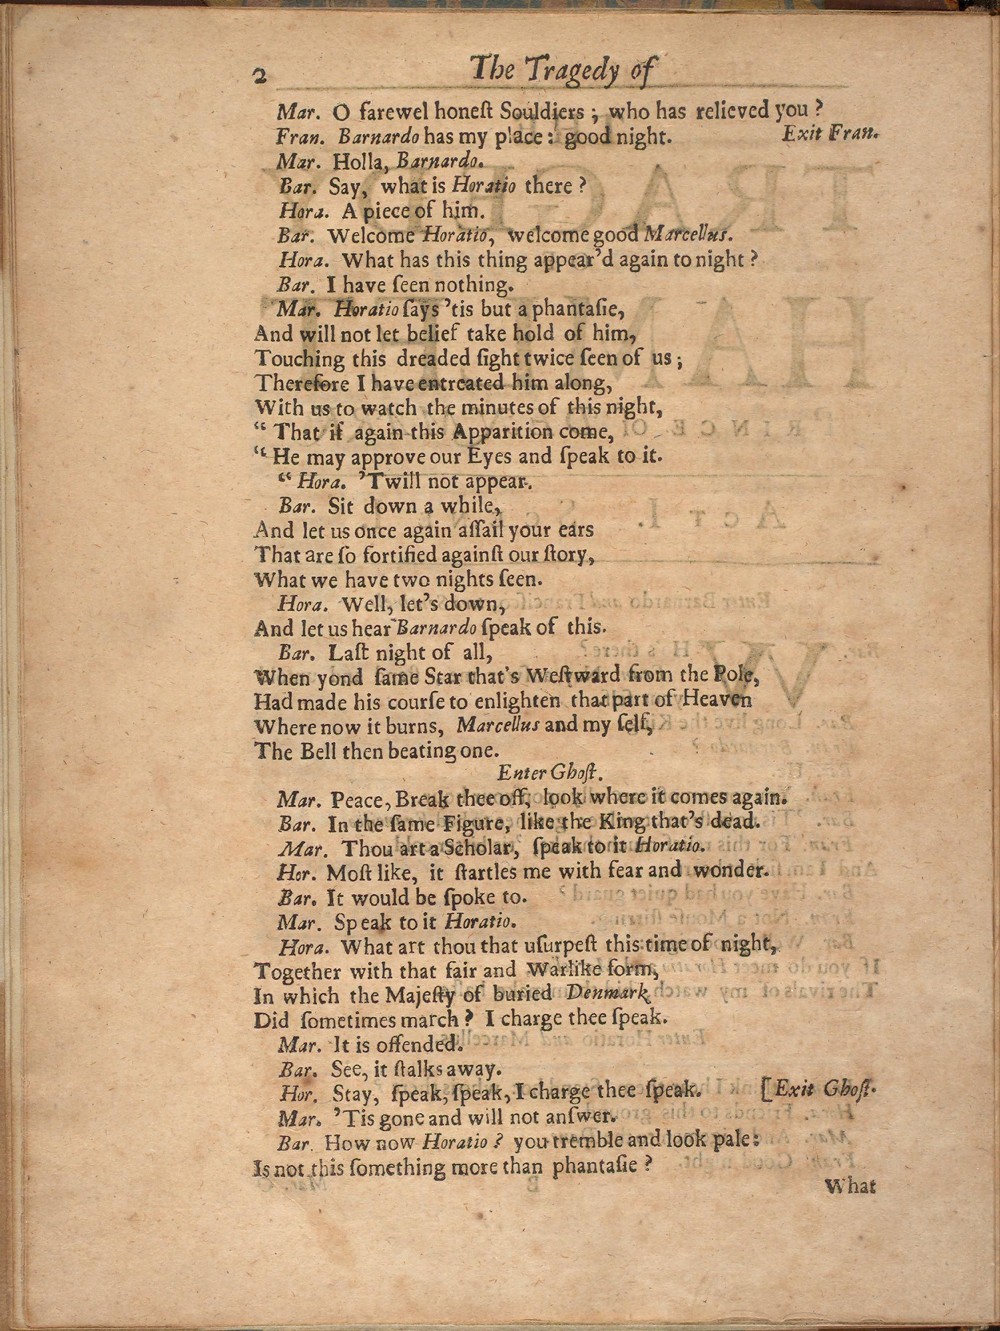 2 The Tragedy of
Mar. O farewel honeſt Souldiers ; who has relieved you ?
Fran. Barnardo has my place : good night. Exit Fran.
Mar. Holla, Barnardo.
Bar. Say, what is Horatio there ?
Hora. A piece of him.
Bar. Welcome Horatio, welcome good Marcellus.
Hora. What has this thing appear'd again to night ?
Bar. I have ſeen nothing.
Mar. Horatio ſays 'tis but a phantaſie,
And will not let belief take hold of him,
Touching this dreaded ſight twice ſeen of us ;
Therefore I have entreated him along,
With us to watch the minutes of this night,
“ That if again this Apparition come,
“ He may approve our Eyes and ſpeak to it.
“ Hora. 'Twill not appear.
Bar. Sit down a while,
And let us once again aſſail your ears
That are ſo fortified againſt our ſtory,
What we have two nights ſeen.
Hora. Well, let's down,
And let us hear Barnardo ſpeak of this.
Bar. Laſt night of all,
When yond ſame Star that's Weſtward from the Pole,
Had made his courſe to enlighten that part of Heaven
Where now it burns, Marcellus and my ſelf,
The Bell then beating one.
Enter Ghoſt.
Mar. Peace, Break thee off, look where it comes again.
Bar. In the ſame Figure, like the King that's dead.
Mar. Thou art a Scholar, ſpeak to it Horatio.
Hor. Moſt like, it ſtartles me with fear and wonder.
Bar. It would be ſpoke to.
Mar. Speak to it Horatio.
Hora. What art thou that uſurpeſt this time of night,
Together with that fair and Warlike form,
In which the Majeſty of buried Denmark
Did ſometimes march ? I charge thee ſpeak.
Mar. It is offended.
Bar. See, it ſtalks away.
Hor. Stay, ſpeak, ſpeak, I charge thee ſpeak. [Exit Ghoſt.
Mar. 'Tis gone and will not anſwer.
Bar. How now Horatio ? you tremble and look pale:
Is not this ſomething more than phantaſie ?
What